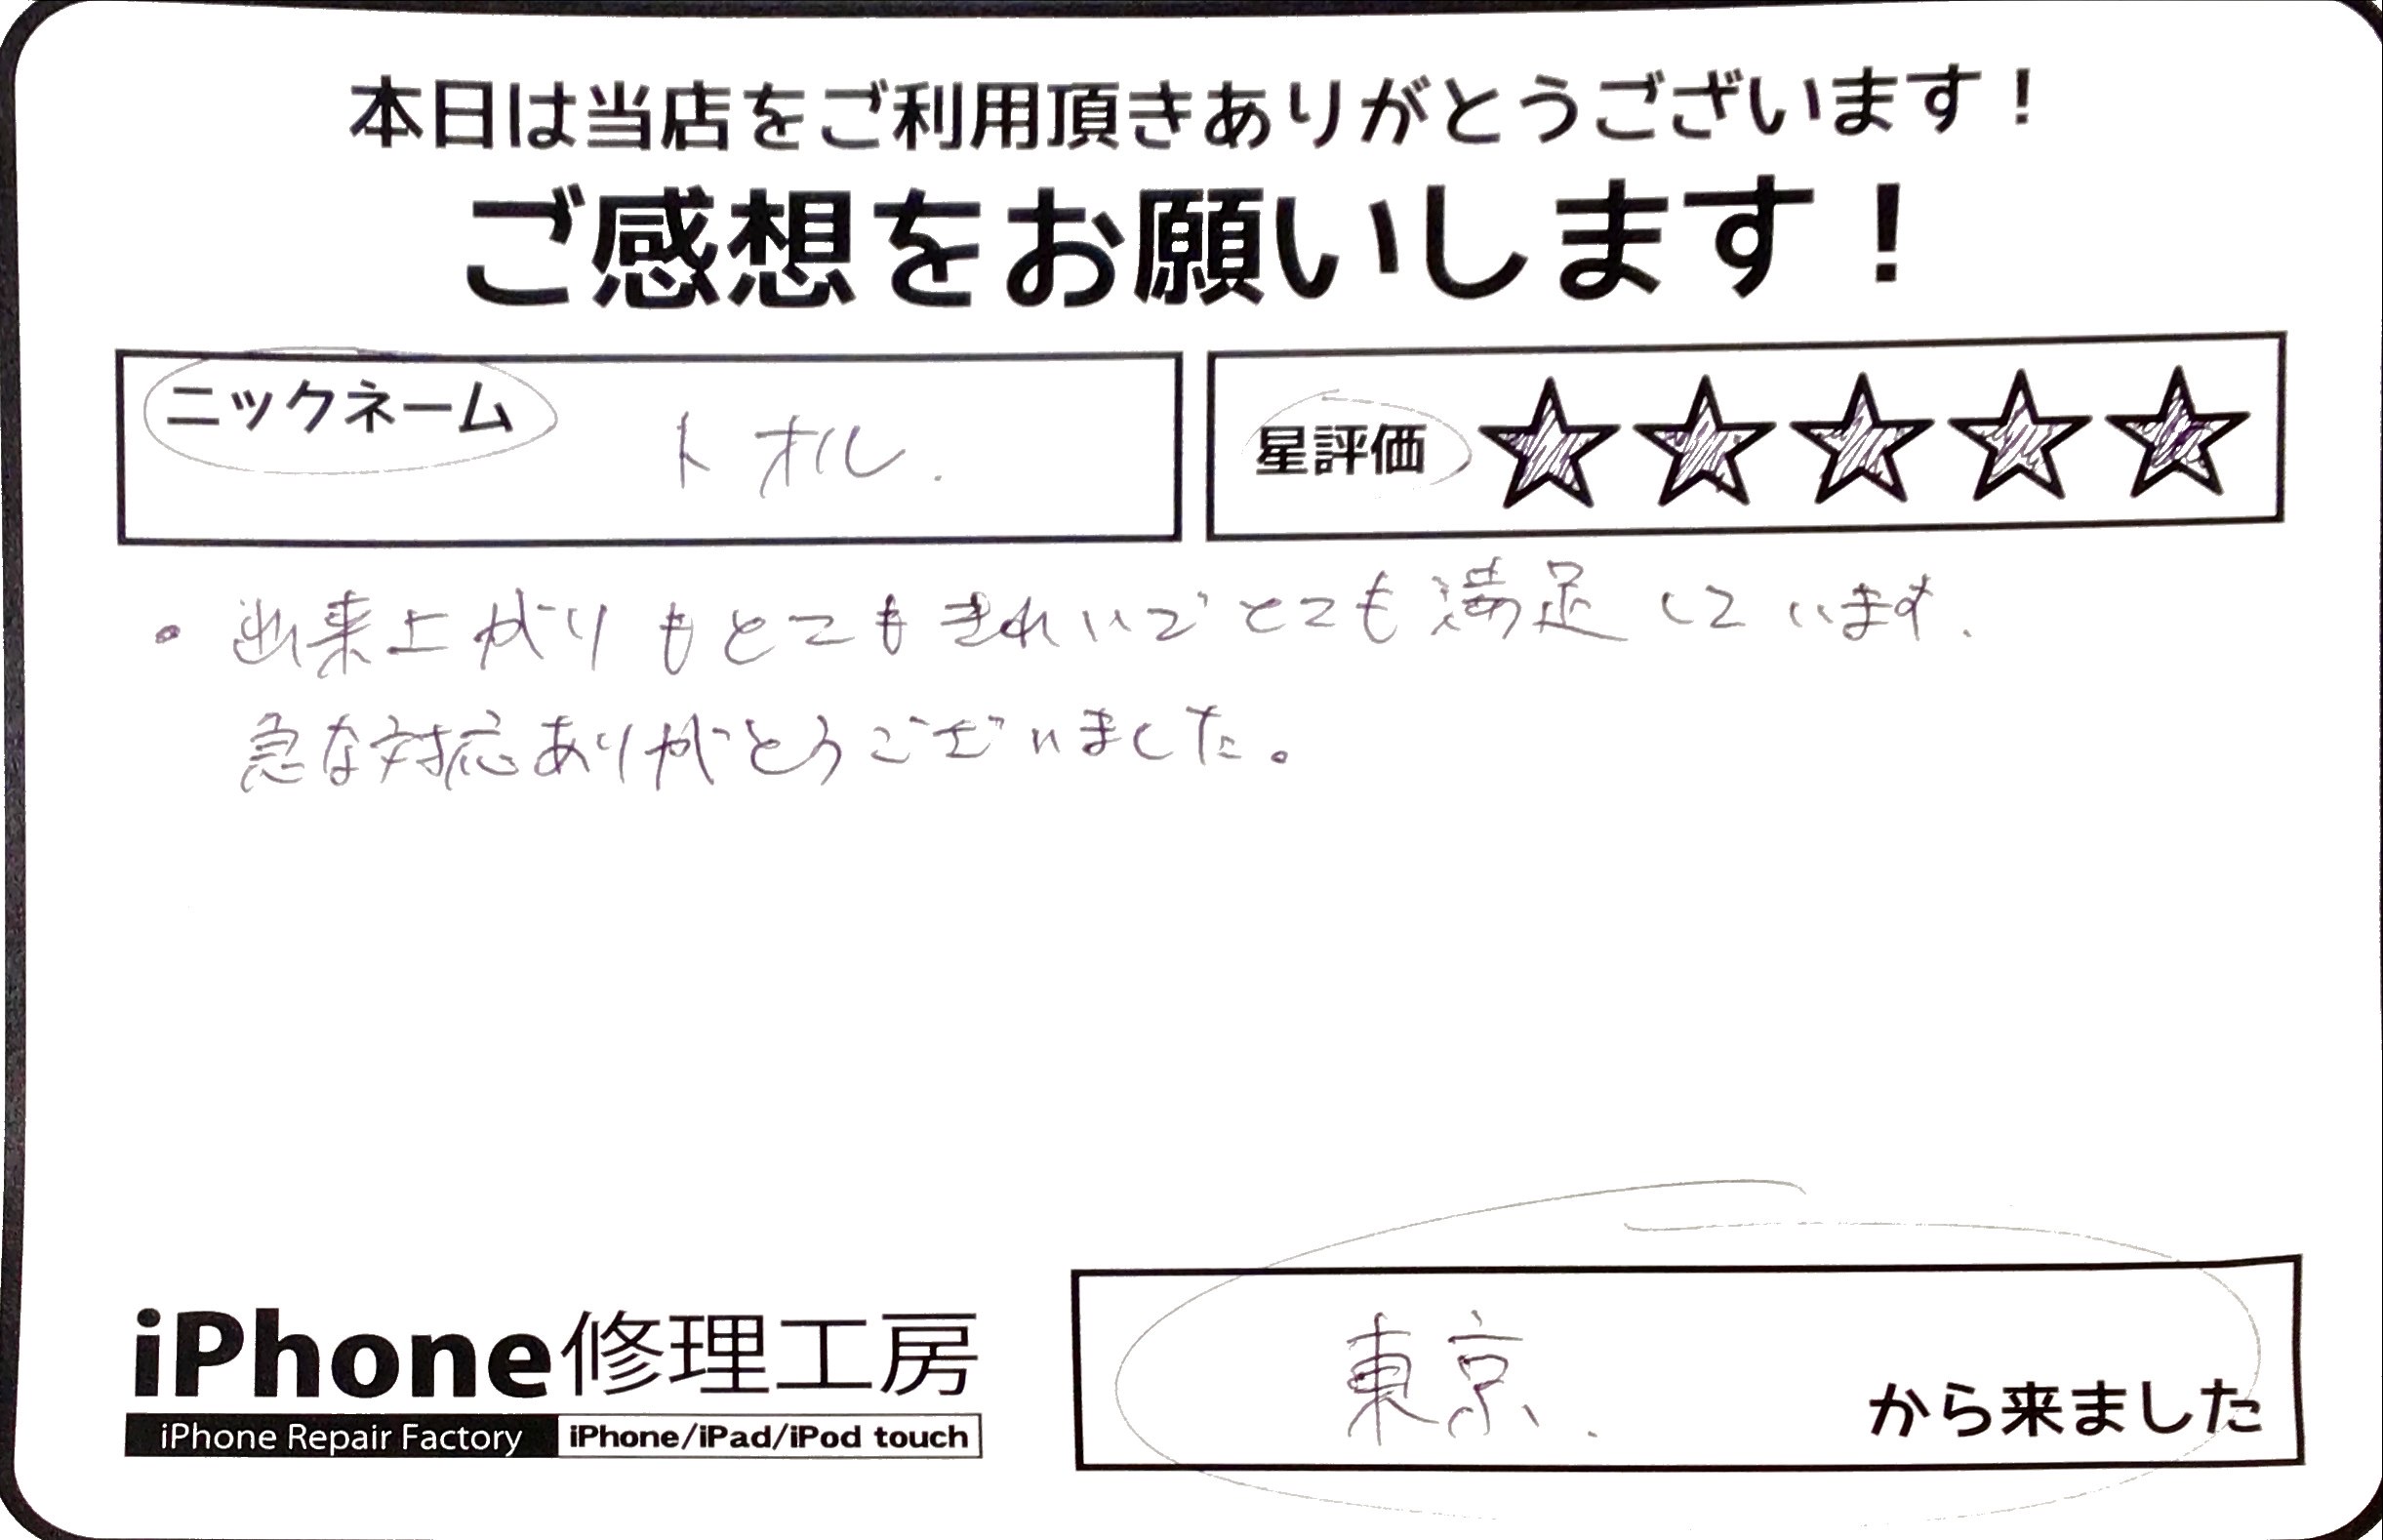 本日は当店をご利用頂きありがとうございます！
ご感想をお願いします！
ニックネーム トオル.
星評価 ★★★★★
・出来上がりもとてもきれいでとても満足しています.
急な対応ありがとうございました。
iPhone修理工房
iPhone Repair Factory iPhone/iPad/iPod touch
東京. から来ました